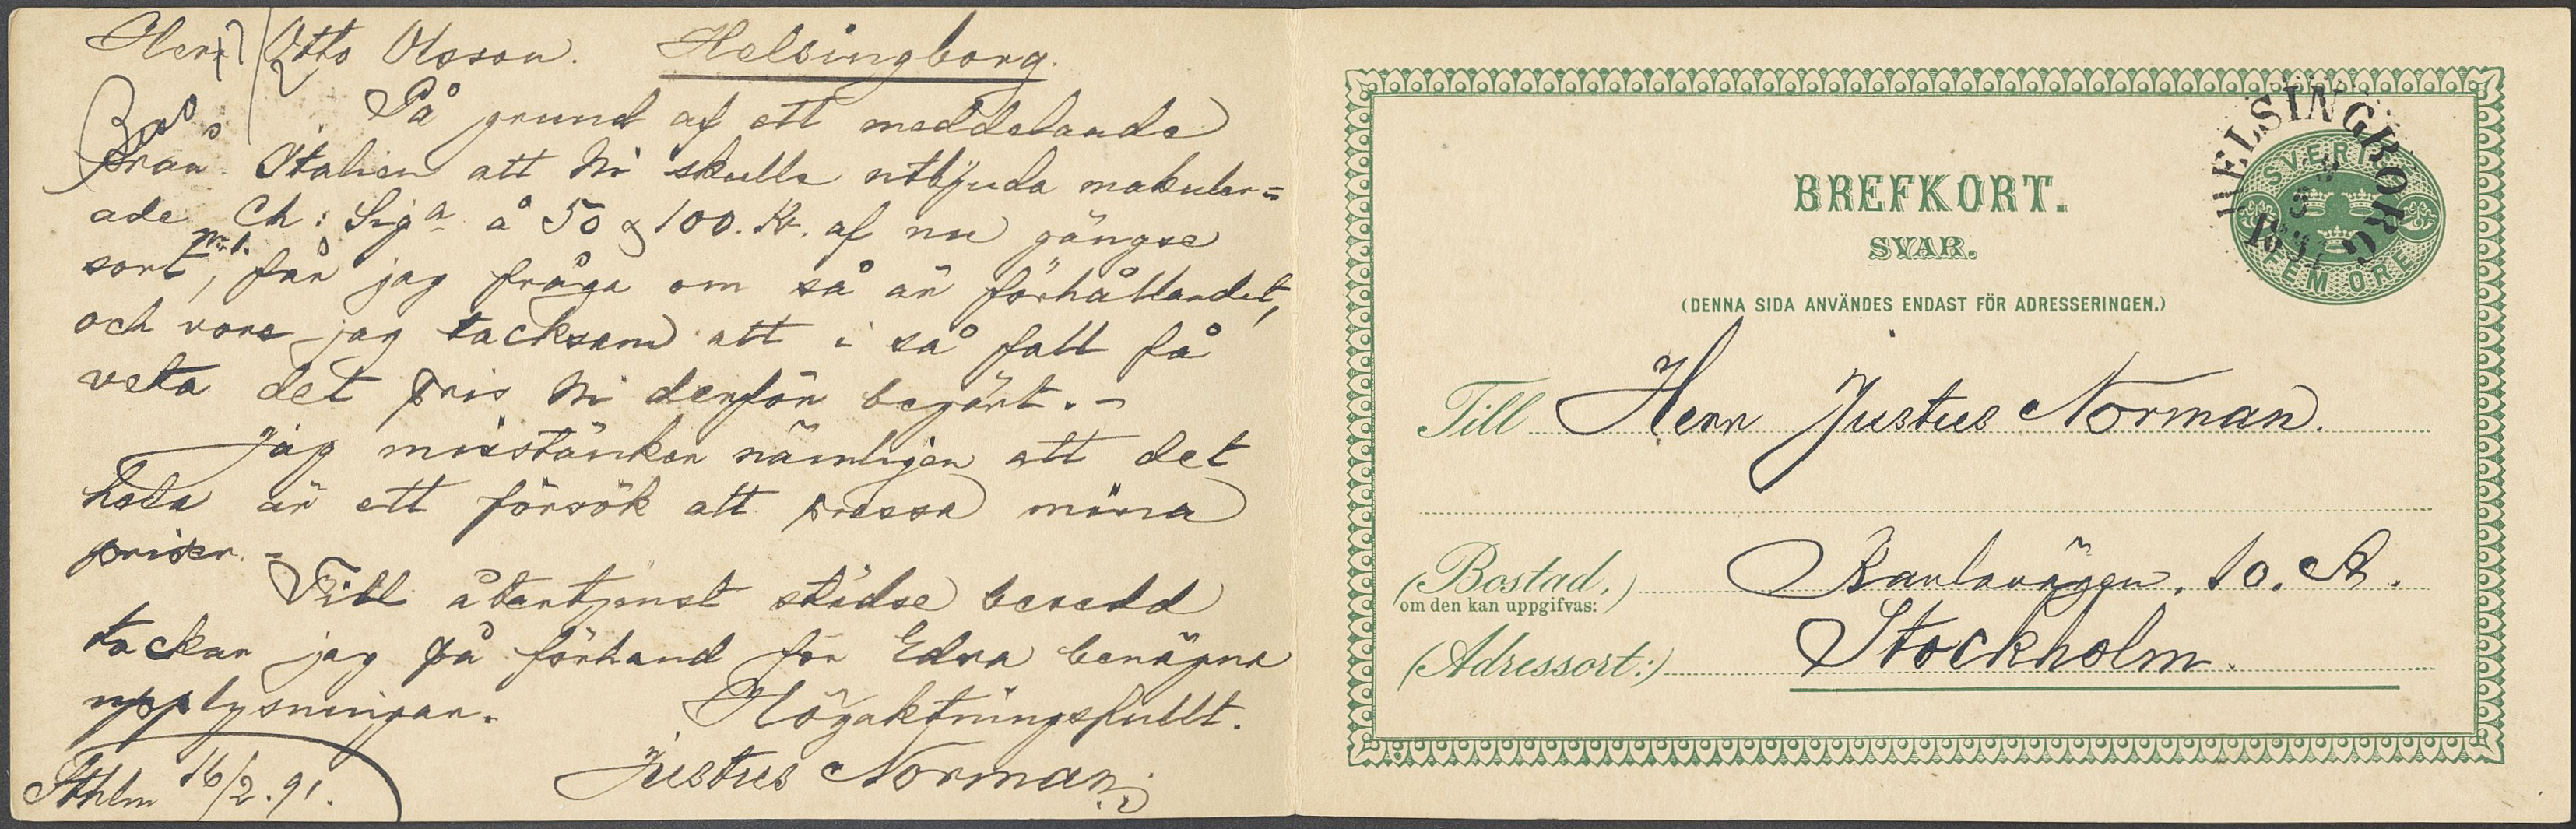 Herr Otto Olsson. Helsingborg.
På grund af ett meddelande
från Italien att Ni skulle utbjuda makuler=
ade Ch: Sig<sup>a</sup> å 50 & 100. Kr. af nu gängse
sort, N:1. får jag fråga om så är förhållandet,
och vore jag tacksam att i så fall få
veta det pris Ni derför begärt. –
Jag misstänker nämligen att det
hela är ett försök att pressa mina
priser. –
Till återtjenst städse beredd
tackar jag på förhand för Edra benägna
upplysningar. Högaktningsfullt.
Justus Norman.
Sthlm 16/2. 91.
HELSINGBORG
1891
SVERIGE
FEM ÖRE
BREFKORT.
SVAR.
(DENNA SIDA ANVÄNDES ENDAST FÖR ADRESSERINGEN.)
Till Herr Justus Norman.
(Bostad,) om den kan uppgifvas: Karlavägen. 10. A.
(Adressort:) Stockholm.